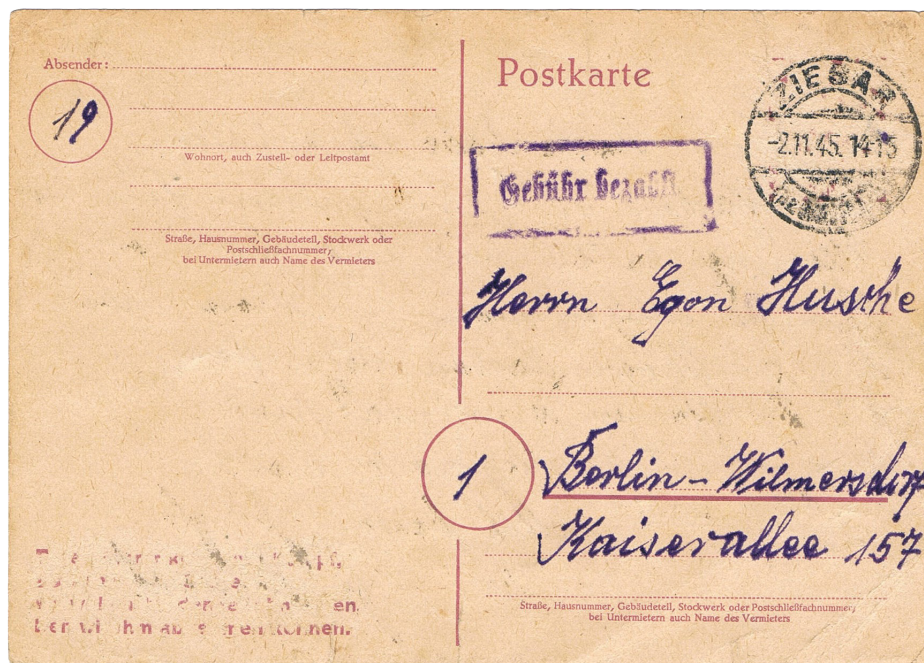 Absender:
19
Wohnort, auch Zustell- oder Leitpostamt
Straße, Hausnummer, Gebäudeteil, Stockwerk oder
Postschließfachnummer,
bei Untermietern auch Name des Vermieters
Postkarte
ZIESAR
-2.11.45. 14-15
Gebühr bezahlt
Herrn Egon Husche
1
Berlin-Wilmersdorf
Kaiserallee 157
Straße, Hausnummer, Gebäudeteil, Stockwerk oder Postschließfachnummer,
bei Untermietern auch Name des Vermieters
können.